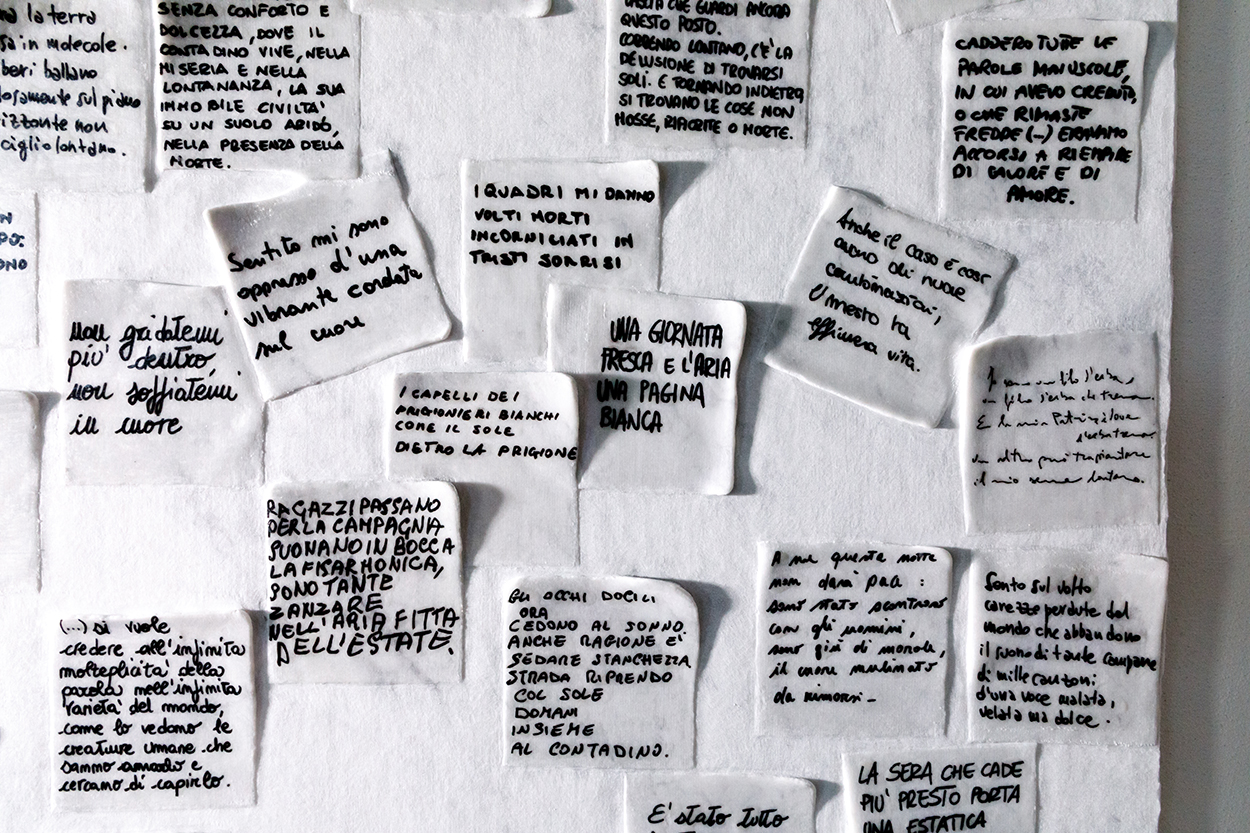 la terra
in molecole.
ballano
sul piano
non
ciglio lontano.
SENZA CONFORTO E
DOLCEZZA, DOVE IL
CONTADINO VIVE, NELLA
MISERIA E NELLA
LONTANANZA, LA SUA
IMMOBILE CIVILTA'
SU UN SUOLO ARIDO,
NELLA PRESENZA DELLA
MORTE.
CHE GUARDI ANCORA
QUESTO POSTO.
CORRENDO LONTANO, C'È LA
DELUSIONE DI TROVARSI
SOLI. E TORNANDO INDIETRO
SI TROVANO LE COSE NON
MOSSE, RIAPERTE O MORTE.
CADDERO TUTTE LE
PAROLE MAIUSCOLE,
IN CUI AVEVO CREDUTO,
O CHE RIMASTE
FREDDE (...) ERAVAMO
ACCORSI A RIEMPIRE
DI CALORE E DI
AMORE.
Sentito mi sono
oppresso d'una
vibrante cordata
sul cuore
I QUADRI MI DANNO
VOLTI MORTI
INCORNICIATI IN
TRISTI SORRISI
Anche il caso è così
avaro di nuove
combinazioni,
È mesto la
effimera vita.
non gridatemi
più dentro,
non soffiatemi
in cuore
UNA GIORNATA
FRESCA E L'ARIA
UNA PAGINA
BIANCA
I CAPELLI DEI
PRIGIONIERI BIANCHI
COME IL SOLE
DIETRO LA PRIGIONE
un filo d'erba
un filo d'erba che trema.
E la mia Patria è dove
l'erba trema.
un altro può trapiantare
il mio seme lontano.
RAGAZZI PASSANO
PER LA CAMPAGNA
SUONANO IN BOCCA
LA FISARMONICA,
SONO TANTE
ZANZARE
NELL'ARIA FITTA
DELL'ESTATE.
GLI OCCHI DOCILI
ORA
CEDONO AL SONNO
ANCHE RAGIONE E'
SEDARE STANCHEZZA
STRADA RIPRENDO
COL SOLE
DOMANI
INSIEME
AL CONTADINO.
A me questa notte
non darà pace:
sono stato scontroso
con gli uomini,
sono giù di morale,
il cuore mulinato
da rimorsi -
Sento sul volto
carezze perdute dal
mondo che abbandono
il suono di tante campane
di mille canzoni
d'una voce malata,
velata ma dolce.
(...) si vuole
credere all'infinita
molteplicità della
parola nell'infinita
varietà del mondo,
come lo vedono le
creature umane che
sanno amarlo e
cercano di capirlo.
E' stato tutto
LA SERA CHE CADE
PIU' PRESTO PORTA
UNA ESTATICA